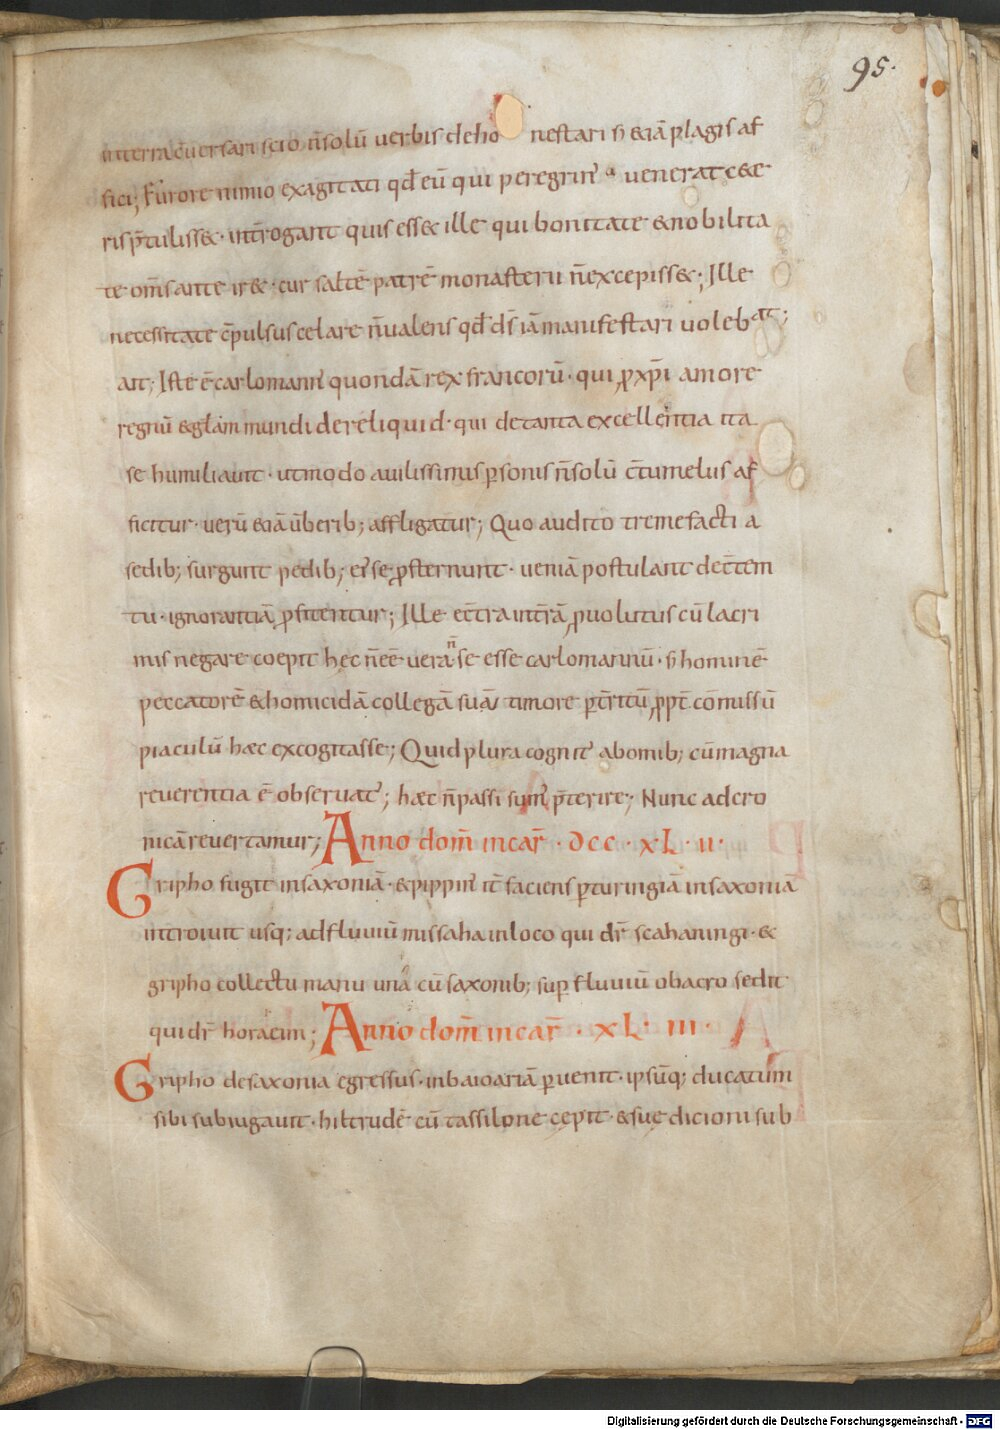 95.
interra c̄uersari scio n̄solū uerbis deho nestari s; &iā plagis af
fici; Furore nimio exagitati qđ eū qui peregrin' a uenerat c&e
ris p̄tuliss&· int̄rogant quis ess& ille qui bonitate &nobilita
te om̄s ante ir&· cur saltē patrē monasterii n̄excepiss&; Ille
necessitate c̄pulsus celare n̄ualens qđ d̄s iā manifestari uolebat;
ait; Iste ē carlomann' quondā rex francorū· qui ꝓ xp̄i amore
regnū &gl̄am mundi dereliquid· qui detanta excellentia ita
se humiliauit· utmodo auilissimis ꝑsonis n̄solū c̄tumeliis af
ficitur· uerū &iā ūberib; affligatur; Quo audito tremefacti a
sedib; surgunt pedib; ei' se ꝓsternunt· ueniā postulant dec̄tem
tu· ignorantiā ꝓfitentur; Ille ec̄tra int̄rā ꝓuolutus cū lacri
mis negare coepit hęc n̄eē uera n̄ se esse carlomannū· s; hominē
peccatorē &homicidā collegā suā timore ꝑt̄ritū ꝓpt̄ com̄issū
piaculū haec excogitasse; Quid plura cognit' abomib; cū magna
reuerentia ē obseruat'; haec n̄passi sum' p̄terire; Nunc ad cro
nicā reuertamur; Anno dom̄ incar̄· DCC· XL· II·
Gripho fugit insaxoniā· &pippin' it̄ faciens ꝑturingiā insaxoniā
introiuit usq; adfluuiū missaha inloco qui dr̄ scahaningi· &
gripho collectu manu unā cū saxonib; suꝑ fluuiū obacro sedit
qui dr̄ horaeim; Anno dom̄ incar̄· XL· III·
Gripho desaxonia egressus· inbaioariā ꝑuenit· ipsūq; ducatum
sibi subiugauit· hiltrudē cū tassilone cępit· &suę dicioni sub
Digitalisierung gefördert durch die Deutsche Forschungsgemeinschaft - DFG